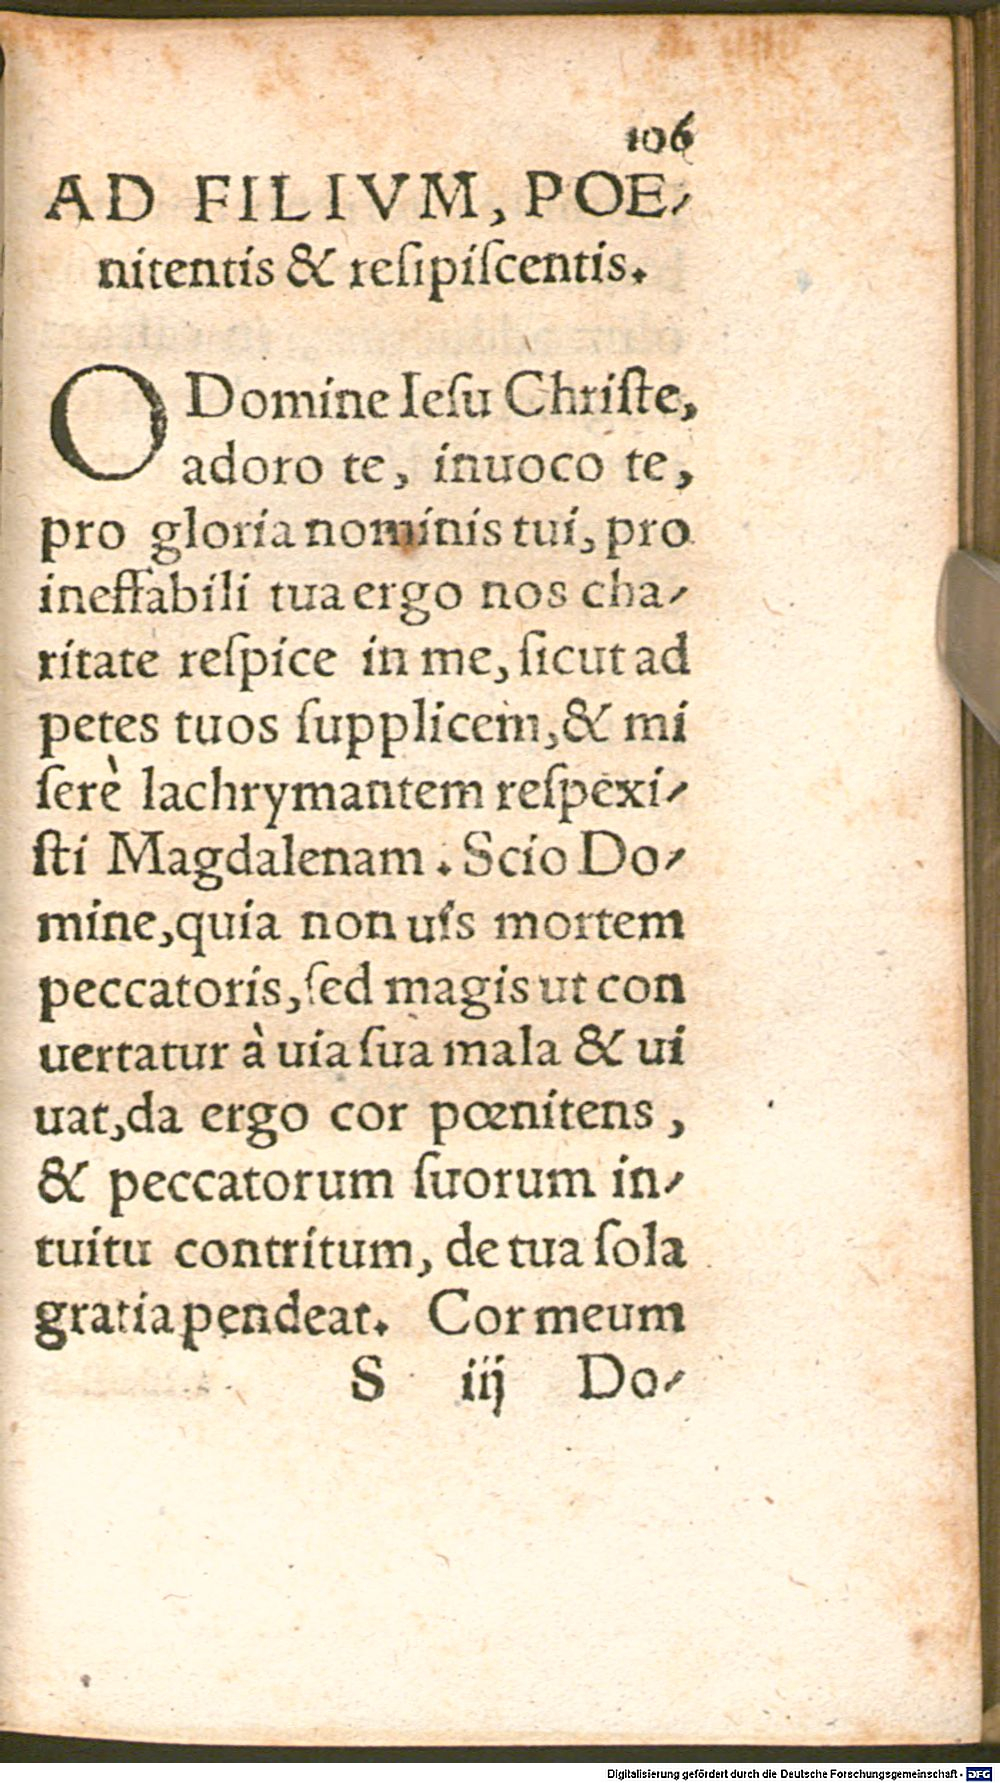 106
AD FILIVM, POE-
nitentis & reſipiſcentis.
O Domine Ieſu Chriſte,
adoro te, inuoco te,
pro gloria nominis tui, pro
ineffabili tua ergo nos cha-
ritate reſpice in me, ſicut ad
petes tuos ſupplicem, & mi
ſerè lachrymantem reſpexi-
ſti Magdalenam. Scio Do-
mine, quia non uis mortem
peccatoris, ſed magis ut con
uertatur à uia ſua mala & ui
uat, da ergo cor pœnitens,
& peccatorum ſuorum in-
tuitu contritum, de tua ſola
gratia pendeat. Cor meum
S iij Do-
Digitalisierung gefördert durch die Deutsche Forschungsgemeinschaft - DFG